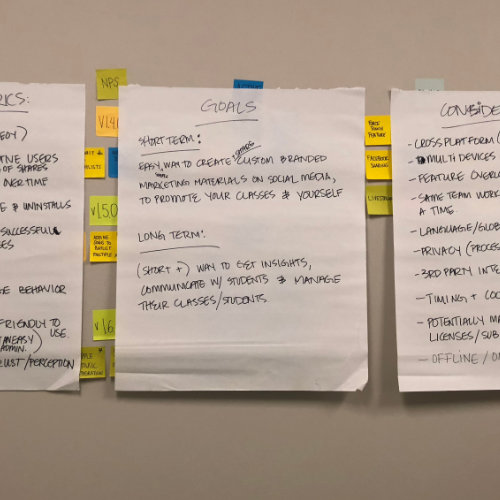 RICS:
TIVE USERS
OF SHARES
OVER TIME
& UNINSTALLS
SUCCESSFUL
BEHAVIOR
FRIENDLY TO
USE.
EASY)
ADMIN.
RUST/PERCEPTION
NPS
V1.5.0
GOALS
SHORT TERM:
EASY WAY TO CREATE CUSTOM & BRANDED
MARKETING MATERIALS ON SOCIAL MEDIA,
TO PROMOTE YOUR CLASSES & YOURSELF
LONG TERM:
(SHORT +) WAY TO GET INSIGHTS,
COMMUNICATE W/ STUDENTS & MANAGE
THEIR CLASSES/STUDENTS.
FACEBOOK
SHARING
CONSIDE
- CROSS PLATFORM
MULTI DEVICES
- FEATURE OVERL
- SAME TEAM WORK
A TIME.
- LANGUAGE/GLOB
- PRIVACY (PROCES
- 3RD PARTY INTE
- TIMING + COO
- POTENTIALLY MA
LICENSES/SUB
- OFFLINE/O